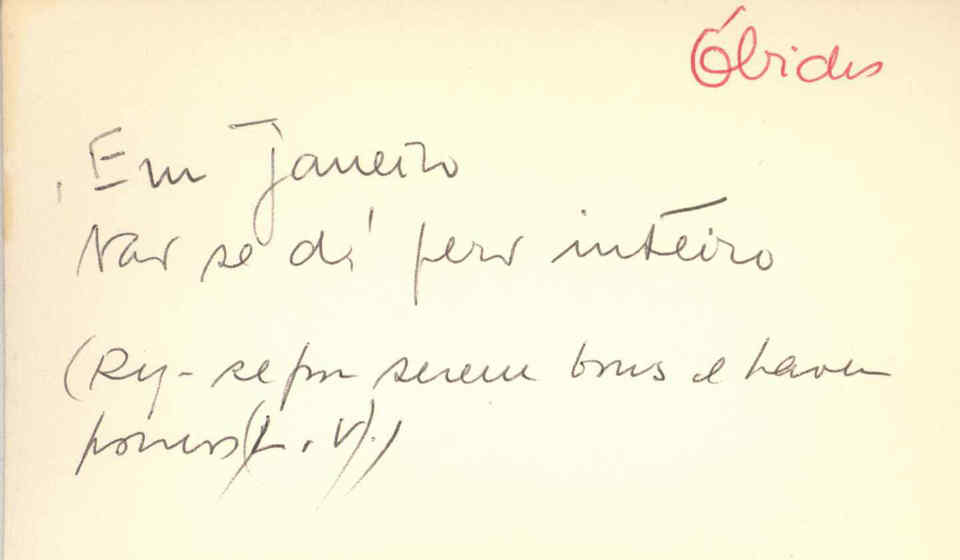 Óbidos
Em Janeiro
Não se dá pero inteiro
( - se por serem bons e haver
poucos (L. V).)